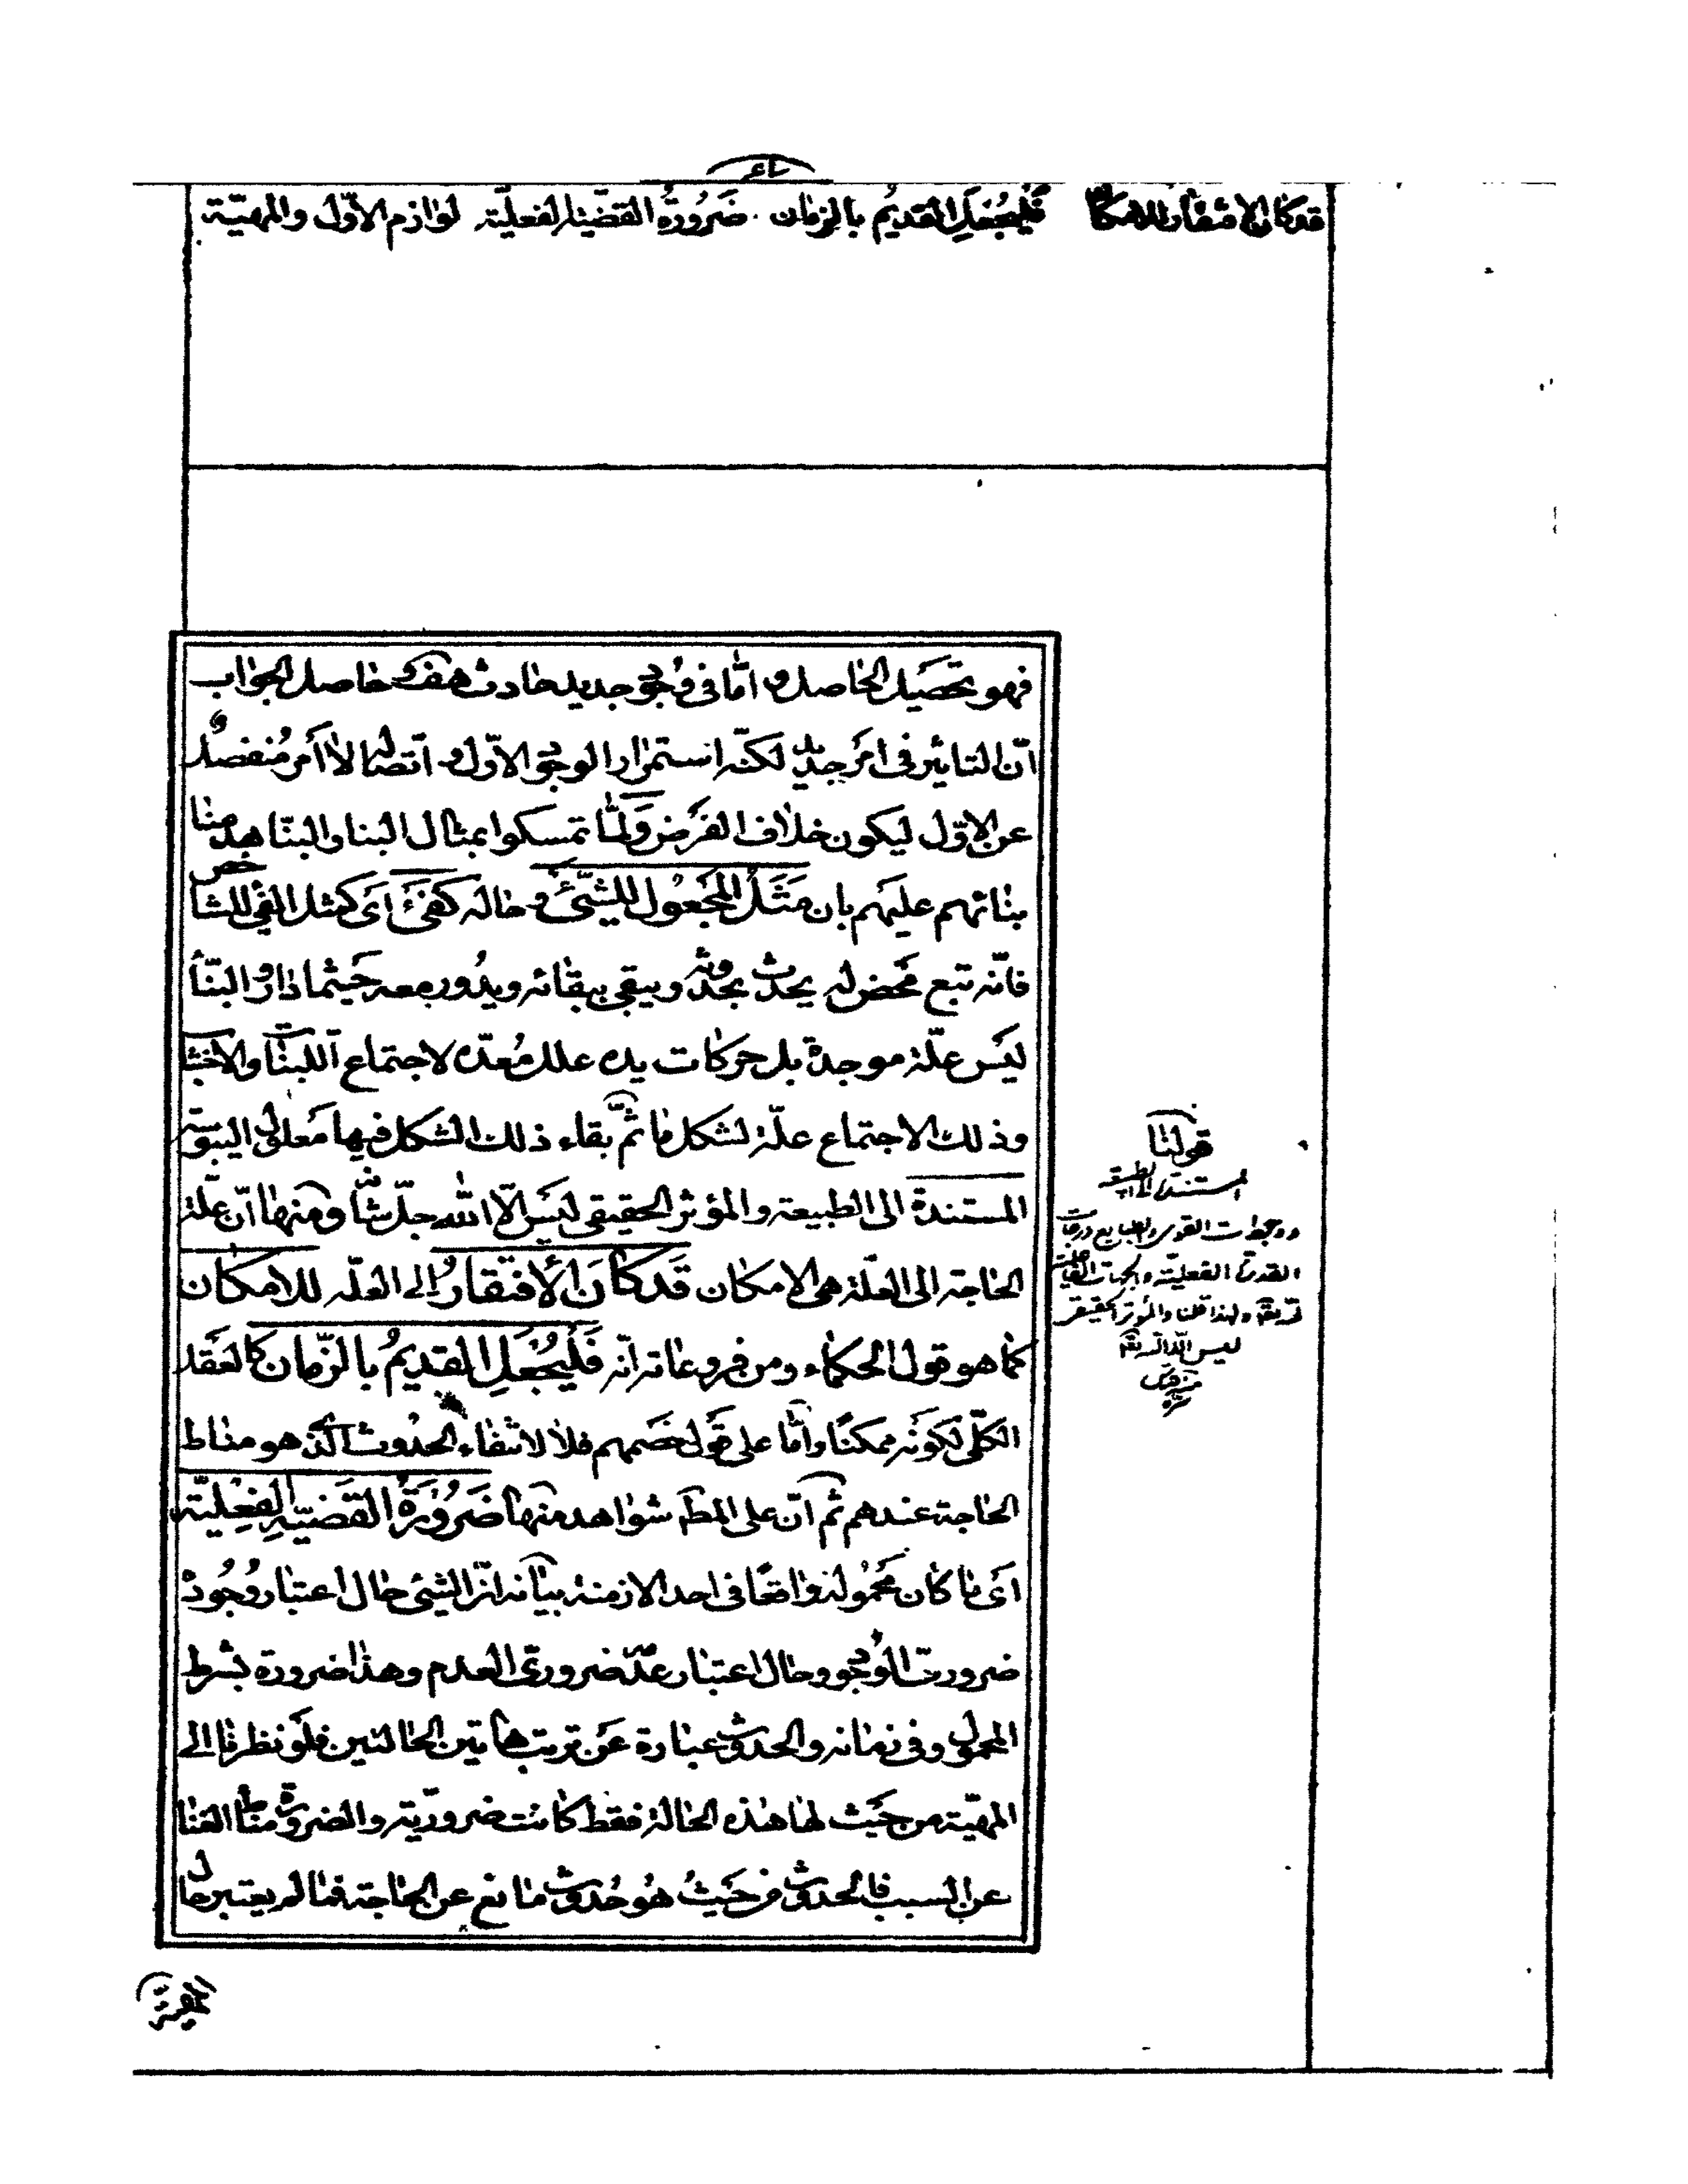 قد كان الافتقار للامكان فليجعل القديم بالزمان ضرورة القضية الفعلية لوازم الاول والمهية
فهو تحصيل الحاصل واما فى وجود جديد حادث هف حاصل الجواب
ان التاثير فى امر جديد لكنه استمرار الوجود الاول واتصاله لا امر منفصل
عن الاول ليكون خلاف الفرض ولما تمسكوا بمثال البنا والبناء هدمنا
بنائهم عليهم بان مثل المجعول للشيئ وحاله كفيئ اى كمثل الفئ للشاخص
فانه تبع محض له يحدث بحدوثه ويبقى ببقائه ويدور معه حيثما دار والبناء
ليس علة موجدة بل حركات يده علل معده لاجتماع اللبنات والاخشاب
وذلك الاجتماع علة لشكل ما ثم بقاء ذلك الشكل فيها معلول اليبوسة
المستندة الى الطبيعة والمؤثر الحقيقى ليس الا الله جل شانه ومنها ان علة
الحاجة الى العلة هى الامكان قد كان الافتقار الى العله للامكان
كما هو قول الحكماء ومن فروعاته انه فليجعل القديم بالزمان كالعقل
الكلى لكونه ممكنا واما على قول خصمهم فلا لانتفاء الحدوث الذى هو مناط
الحاجة عندهم ثم ان على المط شواهد منها ضرورة القضية الفعلية
اى ما كان محموله واقعا فى احد الازمنة بيانه ان الشيئ حال اعتبار وجوده
ضرورى الوجود وحال اعتبار عدمه ضرورى العدم وهذا ضرورة بشرط
المحمول وفى زمانه والحدوث عبارة عن ترتب هاتين الحالتين فلو نظرنا الى
المهية من حيث لها هذه الحالة فقط كانت ضرورية والضرورة مناط الغنا
عن السبب فالحدوث من حيث هو حدوث مانع عن الحاجة فما لم يعتبر حال
المهية
قولنا
المستندة الى الطبيعة
القوى والطبايع درجات
ولهذا قلنا والمؤثر الحقيقى
ليس الا الله